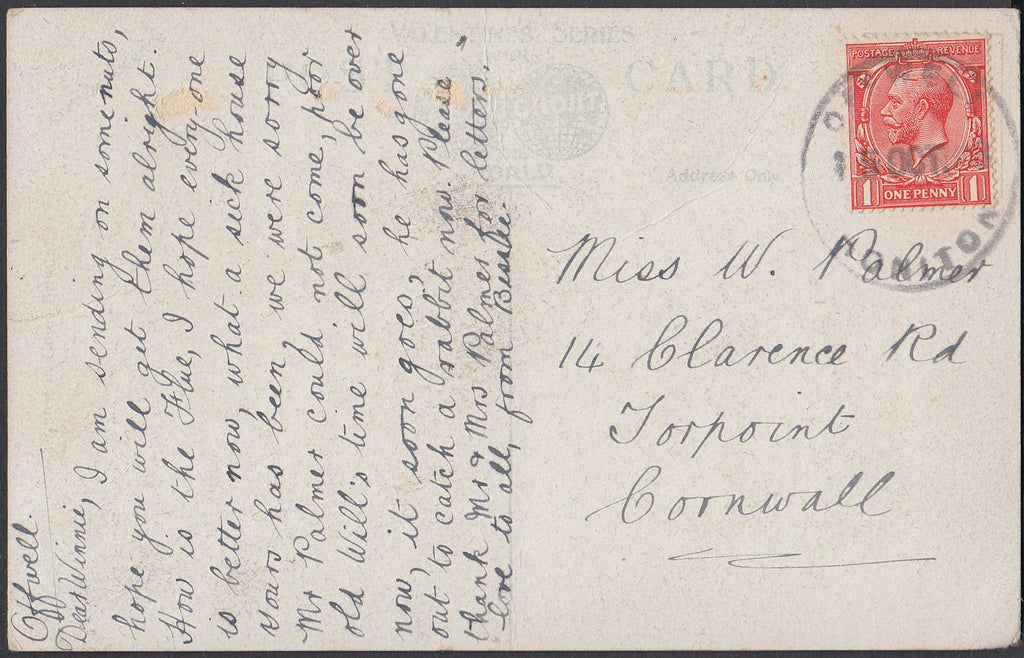 Offwell.
Dear Winnie, I am sending on some nuts,
hope you will get them alright
How is the Flue, I hope every one
is better now, what a sick house
yours has been, we were sorry
Mr Palmer could not come, poor
old Will's time will soon be over
now, it soon goes, he has gone
out to catch a rabbit now. Please
thank Mr & Mrs Palmer for letters,
love to all, from Bessie.
VALENTINE'S SERIES
CARD.
WORLD
Address Only
POSTAGE REVENUE
1 ONE PENNY 1
OCT
HONITON
Miss W. Palmer
14 Clarence Rd
Torpoint
Cornwall